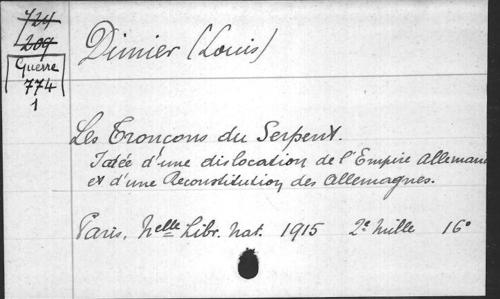 724
209
Guerre
774
1
Dimier (Louis)
Les Tronçons du Serpent.
Idée d'une dislocation de l'Empire Alleman
et d'une Reconstitution des Allemagnes.
Paris, Nelle Libr. Nat. 1915 2e mille 16°